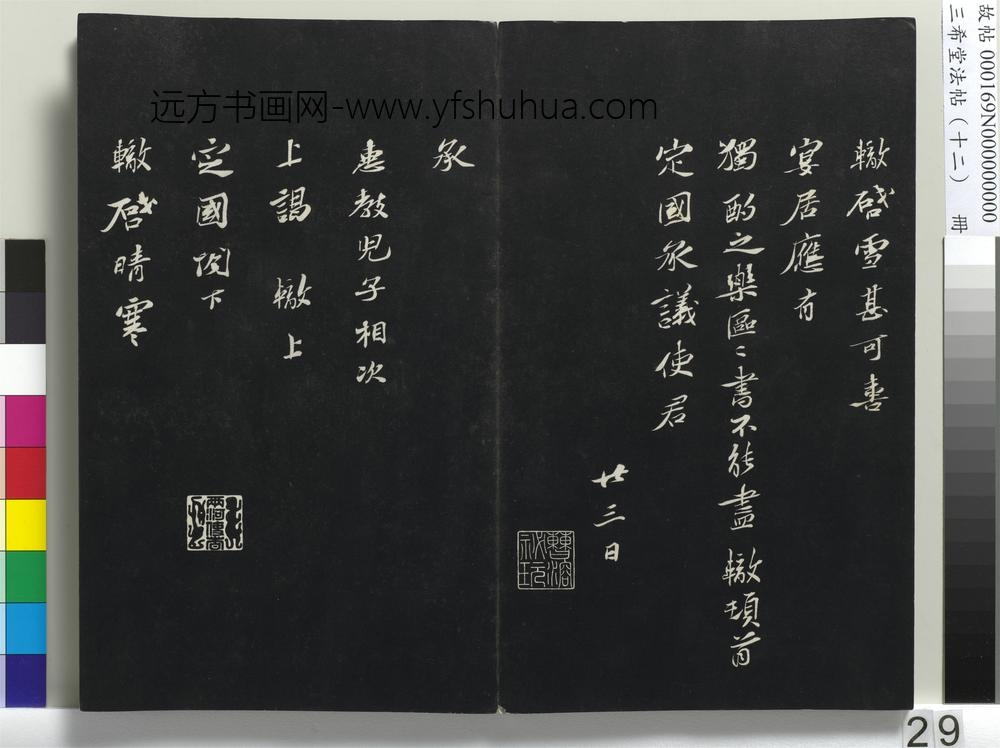 故帖 000169N000000000
三希堂法帖（十二） 冊
远方书画网-www.yfshuhua.com
轍啓雪甚可喜
宴居應有
獨酌之樂區〻書不能盡 轍頓首
定國承議使君
廿三日
曹溶
秘玩
承
惠教兒子相次
上謁 轍上
定國閤下
轍啓晴寒
29